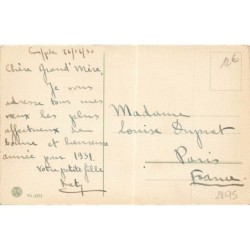 26/12/30
Chère Grand'Mère,
Je vous
adresse tous mes
vœux les plus
affectueux de
bonne et heureuse
année pour 1931.
Votre petite fille
Madame
Louise Dupret
Paris
France
12€
2895